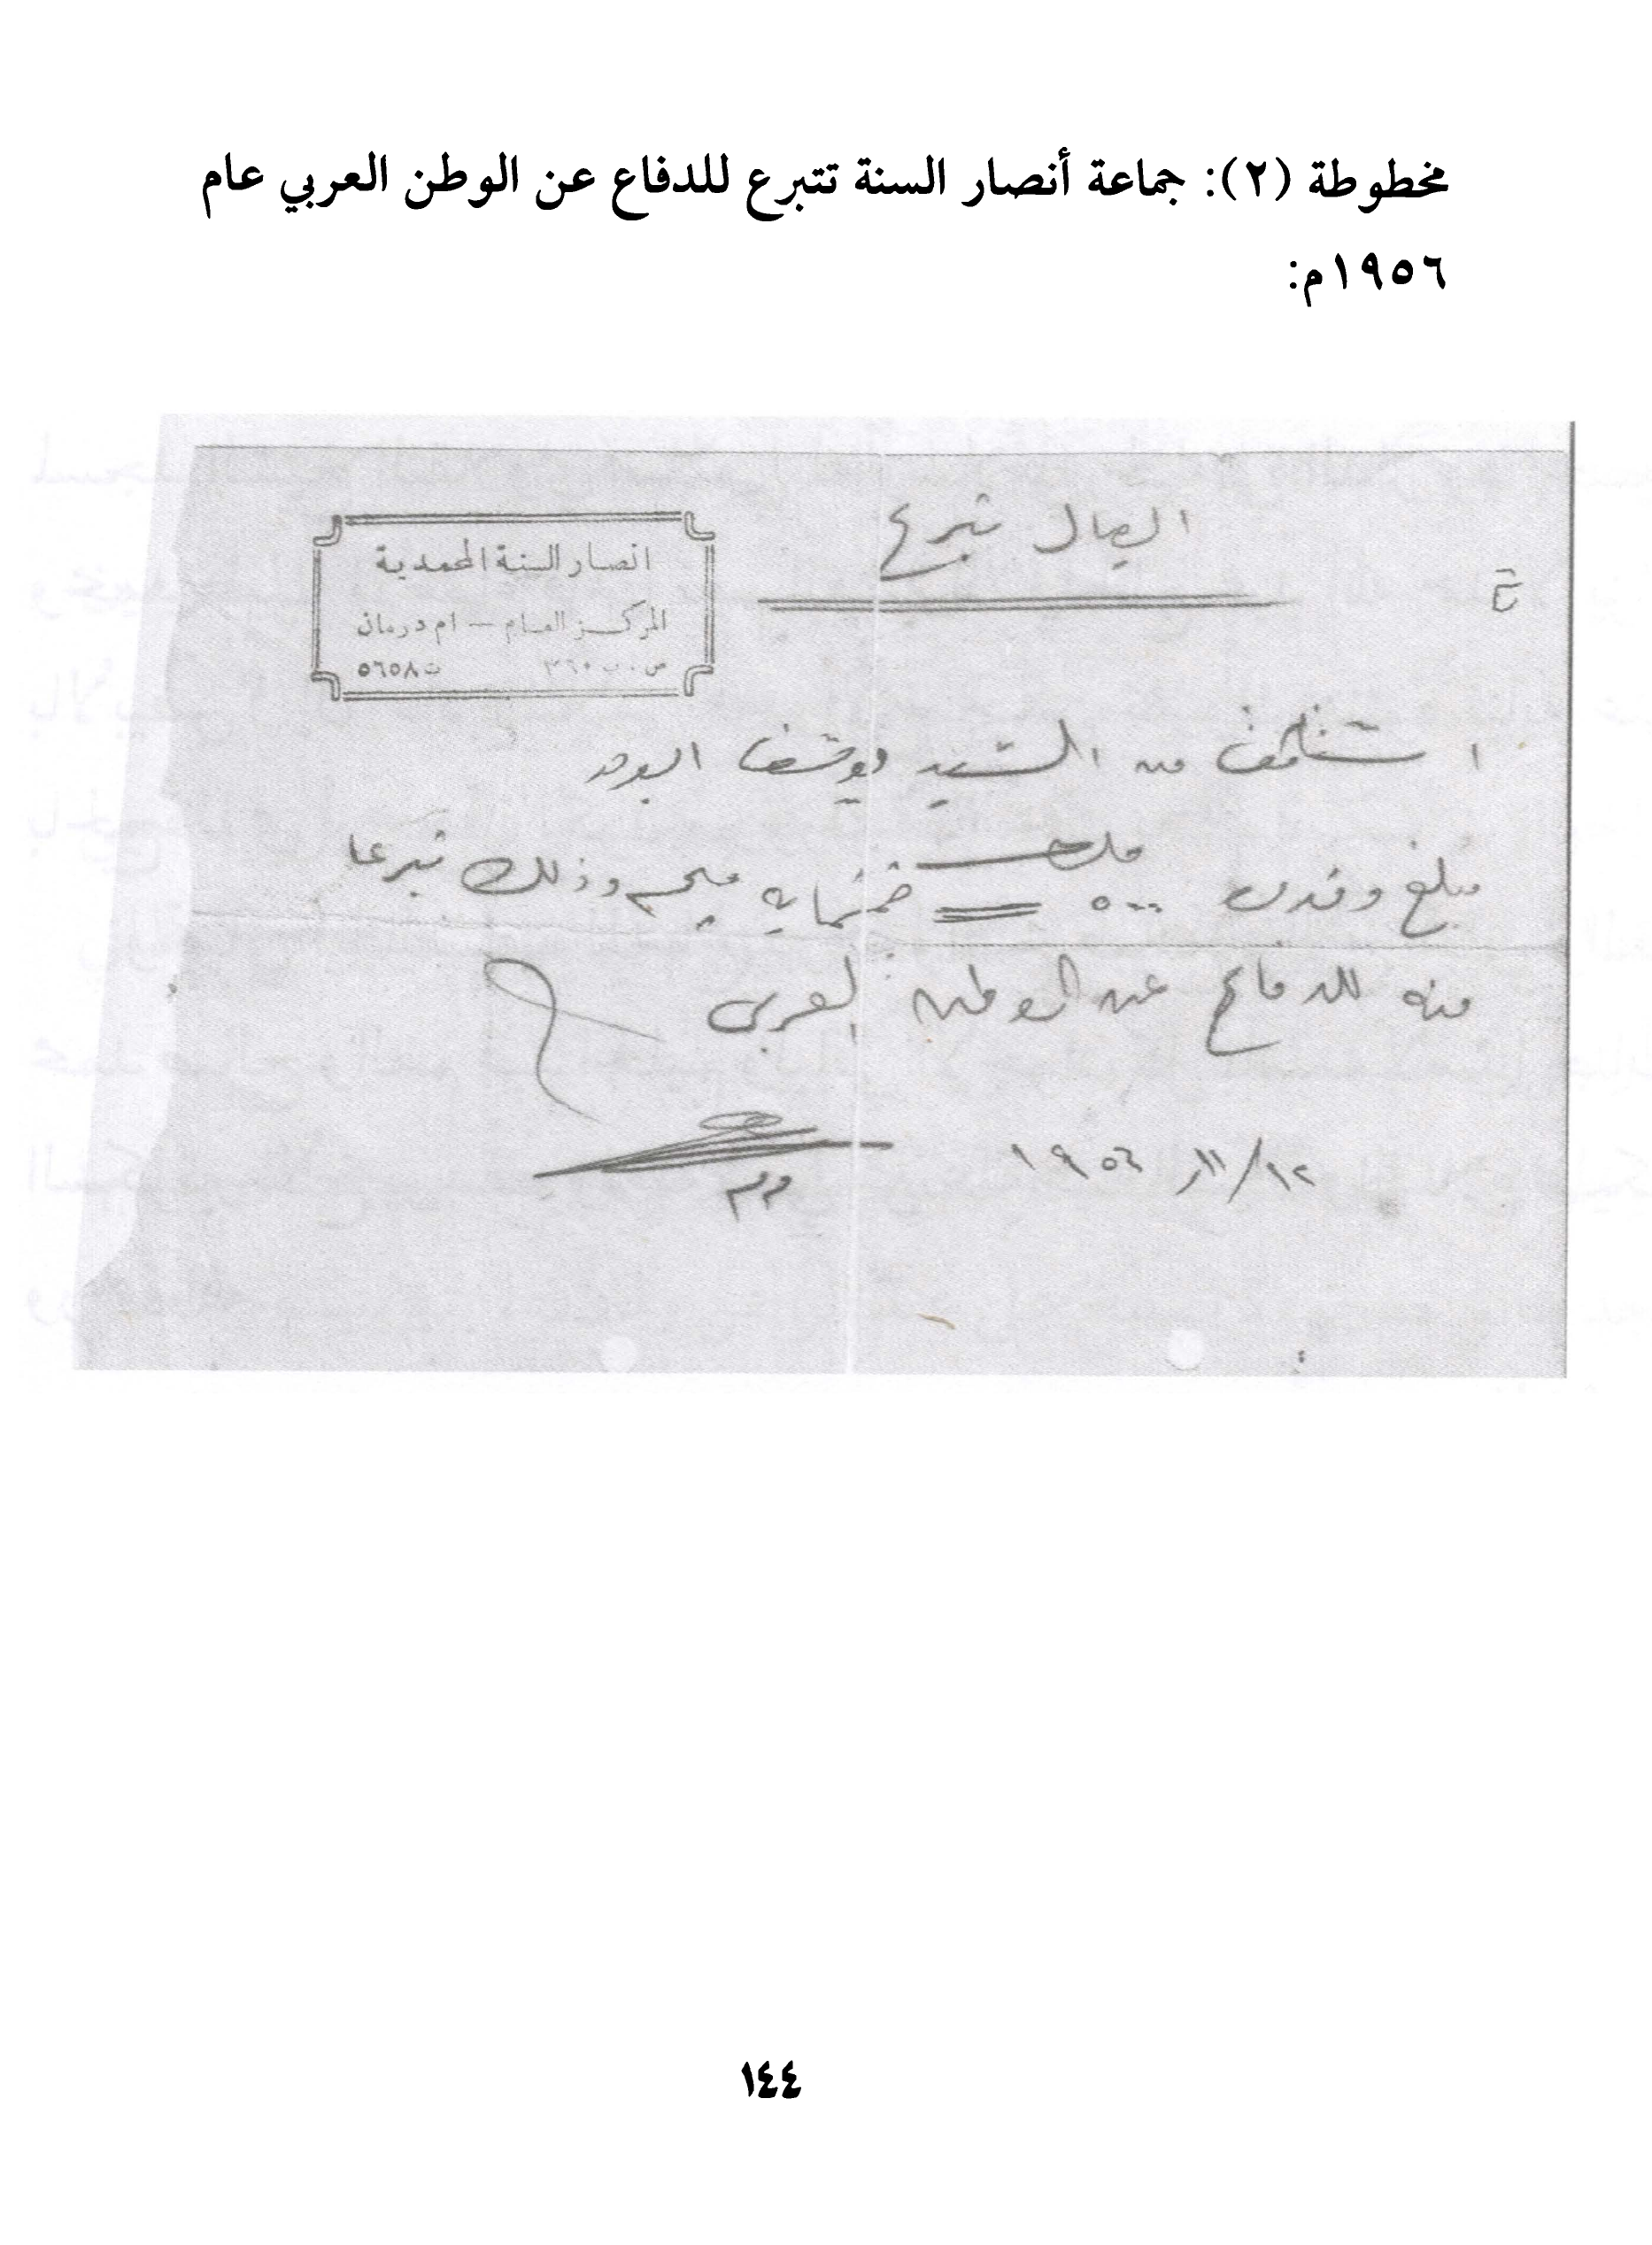 مخطوطة (٢): جماعة أنصار السنة تتبرع للدفاع عن الوطن العربي عام
١٩٥٦م:
ايصال تبرع
انصار السنة المحمدية
المركز العام - ام درمان
ص.ب ٣٦٠ ت ٥٦٥٨
استلمت من السيد يوسف
مبلغ وقدره ٥٠٠ مليم خمسمايه مليم وذلك تبرعا
منه للدفاع عن الوطن العربى
١٢/ ١١/ ١٩٥٦
١٤٤